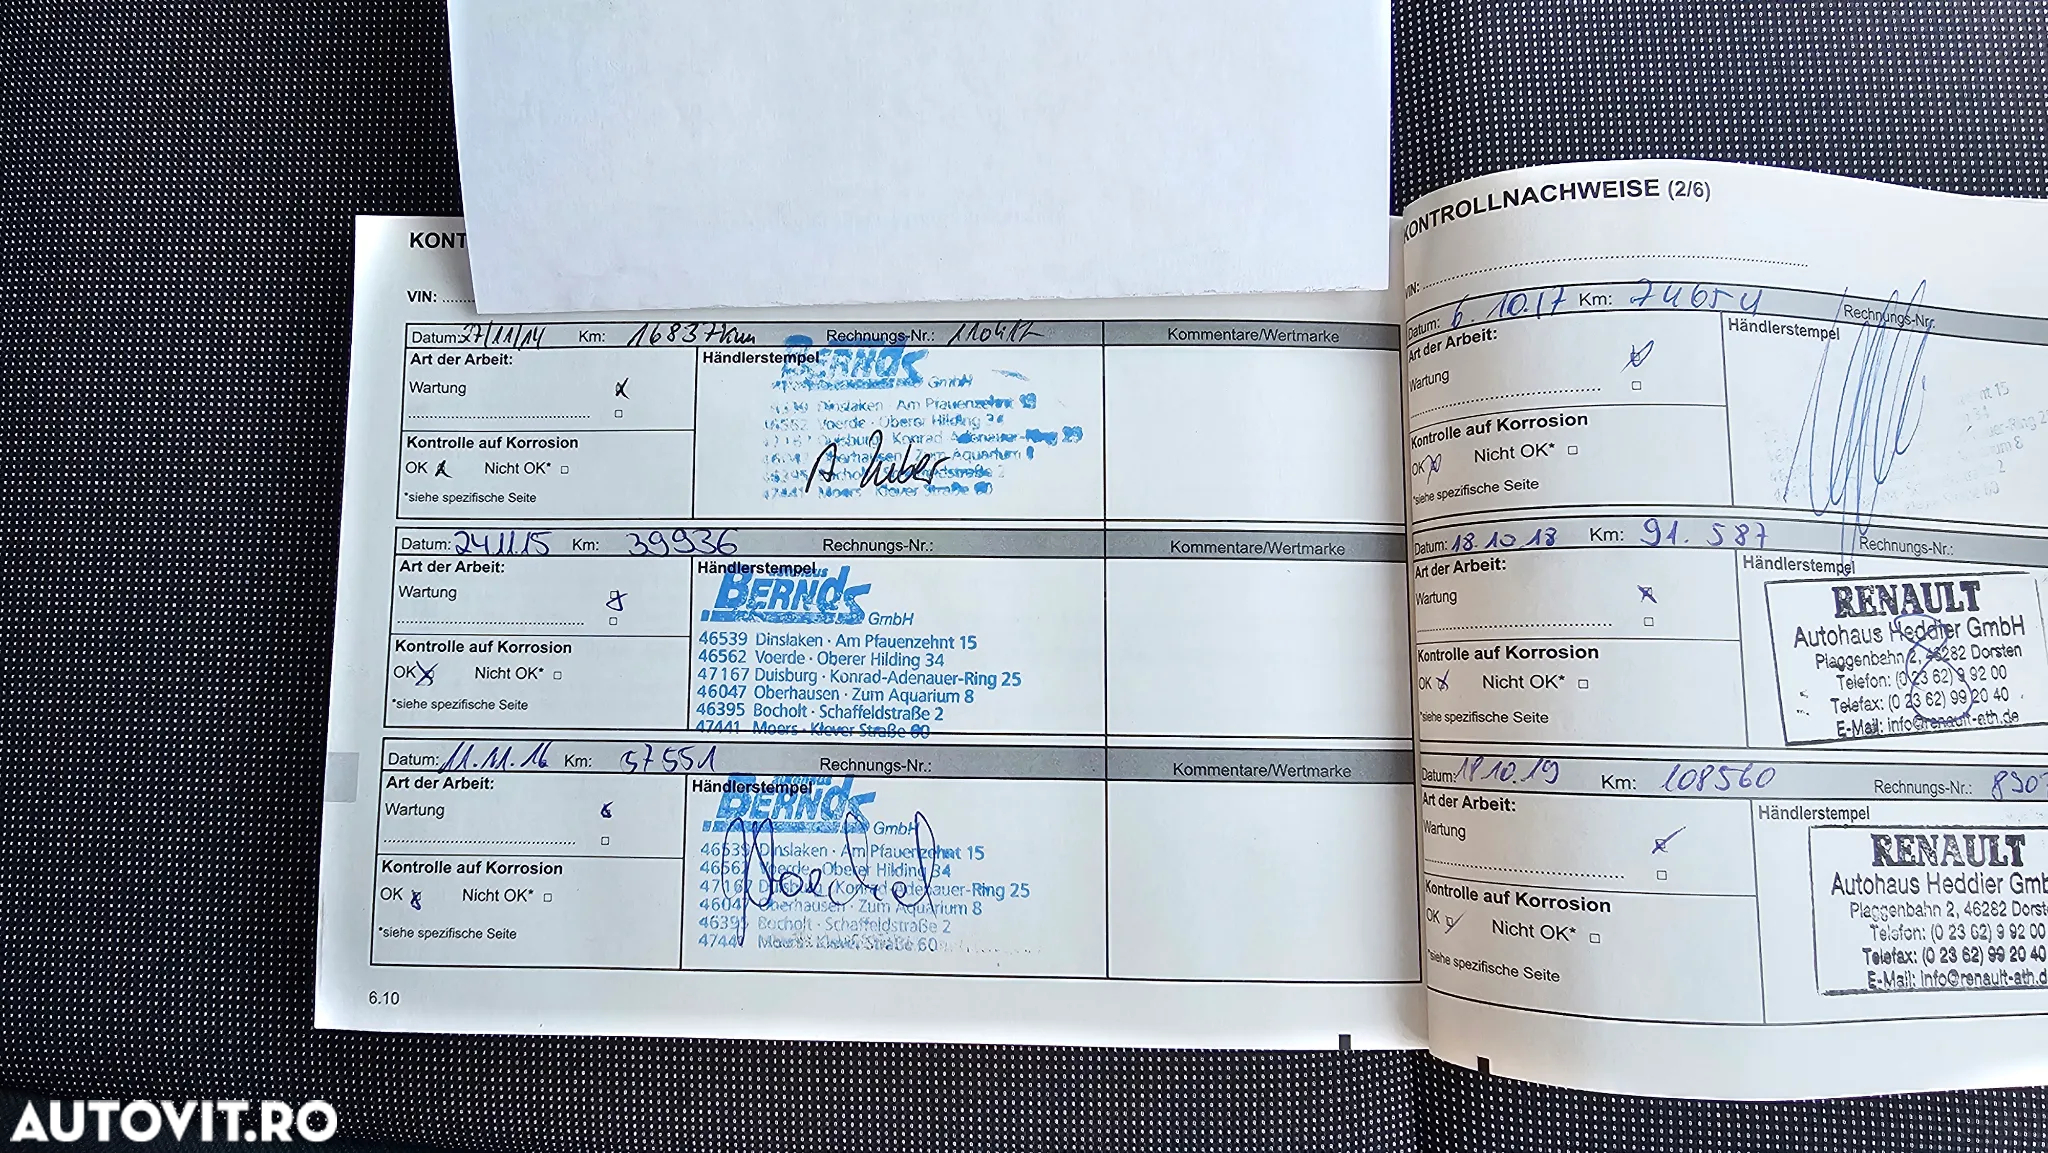 KONT
VIN:
Datum: 27/11/14 Km: 16837km Rechnungs-Nr.: Kommentare/Wertmarke
Art der Arbeit:
Wartung
Händlerstempel
BERNDS GmbH
Dinslaken · Am Pfauenzehnt
Voerde · Oberer Hilding 34
Duisburg Konrad-Adenauer-Ring
Oberhausen Zum Aquarium
Moers Klever Straße 60
Kontrolle auf Korrosion
OK Nicht OK*
*siehe spezifische Seite
Datum: 24.11.15 Km: 39936 Rechnungs-Nr.: Kommentare/Wertmarke
Art der Arbeit:
Wartung
Händlerstempel
BERNDS GmbH
46539 Dinslaken · Am Pfauenzehnt 15
46562 Voerde · Oberer Hilding 34
47167 Duisburg · Konrad-Adenauer-Ring 25
46047 Oberhausen · Zum Aquarium 8
46395 Bocholt · Schaffeldstraße 2
47441 Moers · Klever Straße 60
Kontrolle auf Korrosion
OK Nicht OK*
*siehe spezifische Seite
Datum: 11.11.16 Km: 57551 Rechnungs-Nr.: Kommentare/Wertmarke
Art der Arbeit:
Wartung
Händlerstempel
BERNDS GmbH
46539 Dinslaken · Am Pfauenzehnt 15
46562 Voerde · Oberer Hilding 34
47167 Duisburg · Konrad-Adenauer-Ring 25
46047 Oberhausen · Zum Aquarium 8
46395 Bocholt · Schaffeldstraße 2
47441 Moers · Klever Straße 60
Kontrolle auf Korrosion
OK Nicht OK*
*siehe spezifische Seite
6.10
KONTROLLNACHWEISE (2/6)
VIN:
Datum: 6.10.17 Km: 74654 Rechnungs-Nr.:
Art der Arbeit:
Wartung
Händlerstempel
Kontrolle auf Korrosion
OK Nicht OK*
*siehe spezifische Seite
Datum: 18.10.18 Km: 91.587 Rechnungs-Nr.:
Art der Arbeit:
Wartung
Händlerstempel
RENAULT
Autohaus Heddier GmbH
Plaggenbahn 2, 46282 Dorsten
Telefon: (0 23 62) 9 92 00
Telefax: (0 23 62) 99 20 40
E-Mail: info@renault-ath.de
Kontrolle auf Korrosion
OK Nicht OK*
*siehe spezifische Seite
Datum: 18.10.19 Km: 108560 Rechnungs-Nr.: 8907
Art der Arbeit:
Wartung
Händlerstempel
RENAULT
Autohaus Heddier Gmb
Plaggenbahn 2, 46282 Dorst
Telefon: (0 23 62) 9 92 00
Telefax: (0 23 62) 99 20 40
E-Mail: info@renault-ath.d
Kontrolle auf Korrosion
OK Nicht OK*
*siehe spezifische Seite
AUTOVIT.RO